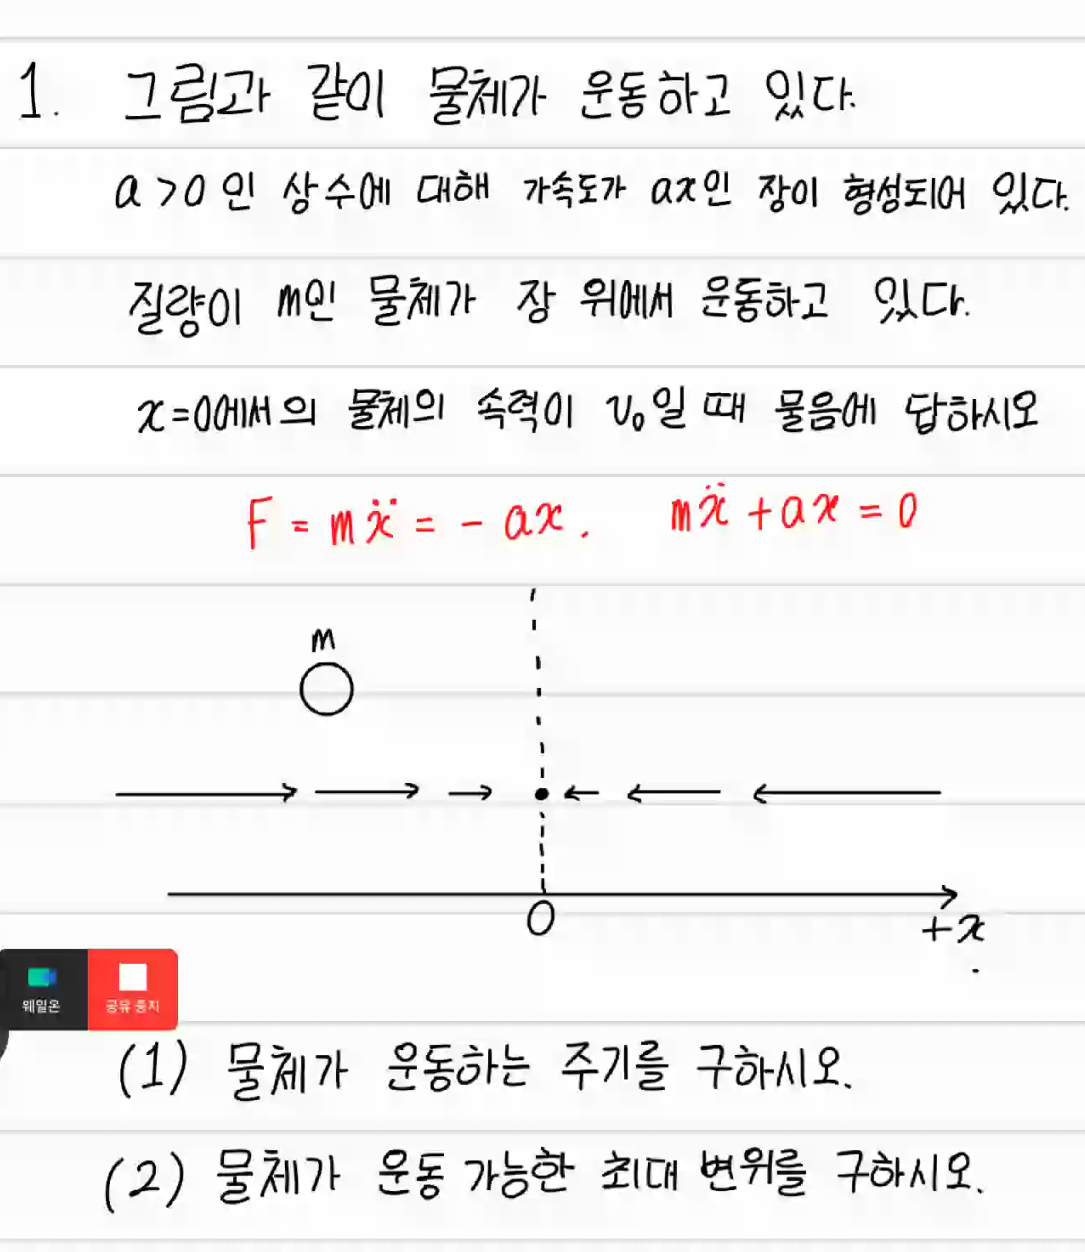 1. 그림과 같이 물체가 운동하고 있다.
a>0인 상수에 대해 가속도가 ax인 장이 형성되어 있다.
질량이 m인 물체가 장 위에서 운동하고 있다.
x=0에서의 물체의 속력이 v₀일 때 물음에 답하시오
F = mẍ = - ax. mẍ + ax = 0
m
0
+x
웨일온 공유 중지
(1) 물체가 운동하는 주기를 구하시오.
(2) 물체가 운동 가능한 최대 변위를 구하시오.